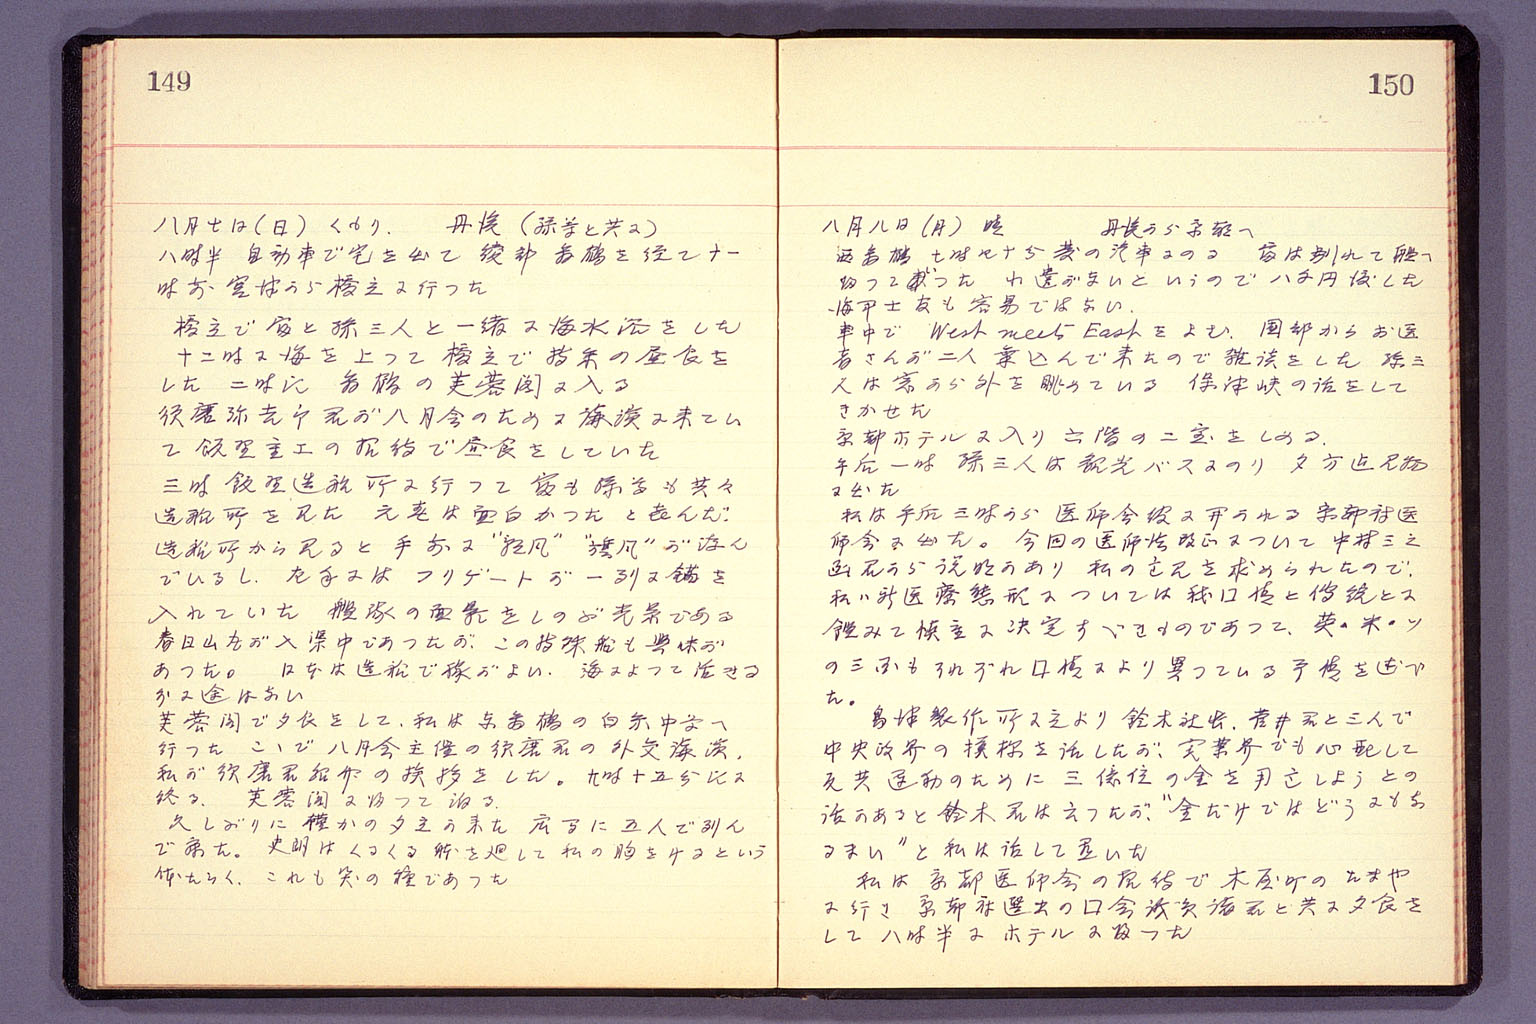 149
八月七日(日) くもり. 丹後 (孫等と共に)
八時半 自動車で宅を出て 綾部 舞鶴を経て十一
時前 宮津から橋立に行つた
橋立で 宿と孫三人と一緒に海水浴をした
十二時に海を上つて 橋立で 昼食を
した 二時に 舞鶴の芙蓉閣に入る
須磨弥吉郎君が八月会のために 講演に来てい
て 飯野重工の招待で昼食をしていた
三時 飯野造船所に行つて も孫等も共々
造船所を見た 元 は面白かつたと喜んだ.
造船所から見ると 手前に "旗風" が並ん
でいるし. 左手には フリゲートが一列に錨を
入れていた 艦隊の面影をしのぶ光景である
春日山丸が入渠中であつたが. この 船も興味が
あつた。 日本は造船で稼がよい. 海によつて活きる
外に途はない
芙蓉閣で夕食をして. 私は東舞鶴の白糸中学へ
行つた こゝで 八月会主催の須磨君の外交講演.
私が須磨君紹介の挨拶をした。 九時十五分に
終る. 芙蓉閣に帰つて 泊る.
久しぶりに 夕立が来た 広間に五人で列ん
で寐た。 史朗はくるくる 体を廻して 私の胸をけるという
たらく. これも笑の種であつた
150
八月八日(月) 晴 丹後から京都へ
西舞鶴 七時 十分発の汽車にのる は別れて へ
帰つて つた れ
海 も容易ではない.
車中で West meets East をよむ. 園部からお医
者さんが二人乗込んで来たので 雑談をした 孫三
人は窓から外を眺めている 保津峡の話をして
きかせた
京都ホテルに入り 六階の二室をしめる.
午后一時 孫三人は観光バスにのり 夕方迄見物
に出た
私は午后三時から 医師会館に開かれる 京都府医
師会に出た。 今回の医師法改正について 中村三之
君から説明があり 私の意見を求められたので.
私は新医療態形については 我国情と伝統とに
鑑みて慎重に決定すべきものであつて、英・米・ソ
の三国もそれぞれ国情により異つている事情を述べ
た。
島津製作所に立より 鈴木社長. 菅井君と三人で
中央政界の模様を話したが. 実業界でも心配して
反共運動のために 三億位の金を用立しようとの
話があると鈴木君は云つたが. "金だけではどうにもな
るまい" と私は話して置いた
私は京都医師会の招待で 木屋町の たまや
に行き 京都府選出の国会議員諸君と共に夕食を
して 八時半に ホテルに帰つた